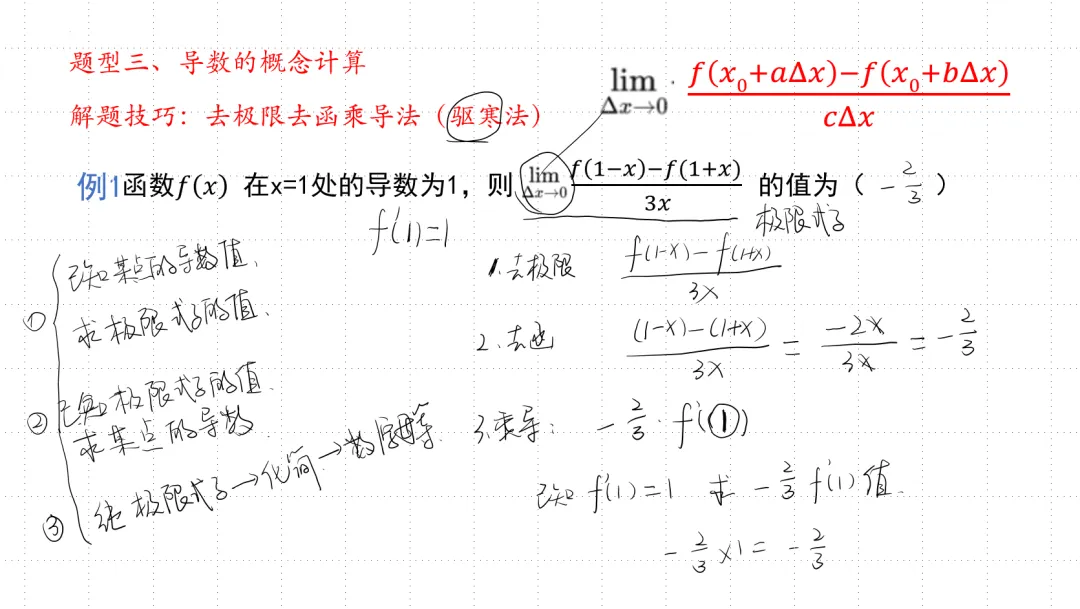 题型三、导数的概念计算
解题技巧：去极限去函乘导法（驱寒法）
lim Δx→0 f(x₀+aΔx)−f(x₀+bΔx) / cΔx
例1函数f(x) 在x=1处的导数为1，则 lim Δx→0 f(1−x)−f(1+x) / 3x 的值为（ −2/3 ）
f'(1)=1
极限式子
① 已知某点的导数值、
求极限式子的值、
② 已知极限式子的值、
求某点的导数
③ 纯极限式子→化简→数字母等
1.去极限 f(1-x)-f(1+x) / 3x
2.去函 (1-x)-(1+x) / 3x = -2x / 3x = -2/3
3.乘导： -2/3 · f'(1)
已知 f'(1)=1 求 -2/3 f'(1) 值.
-2/3 ×1 = -2/3